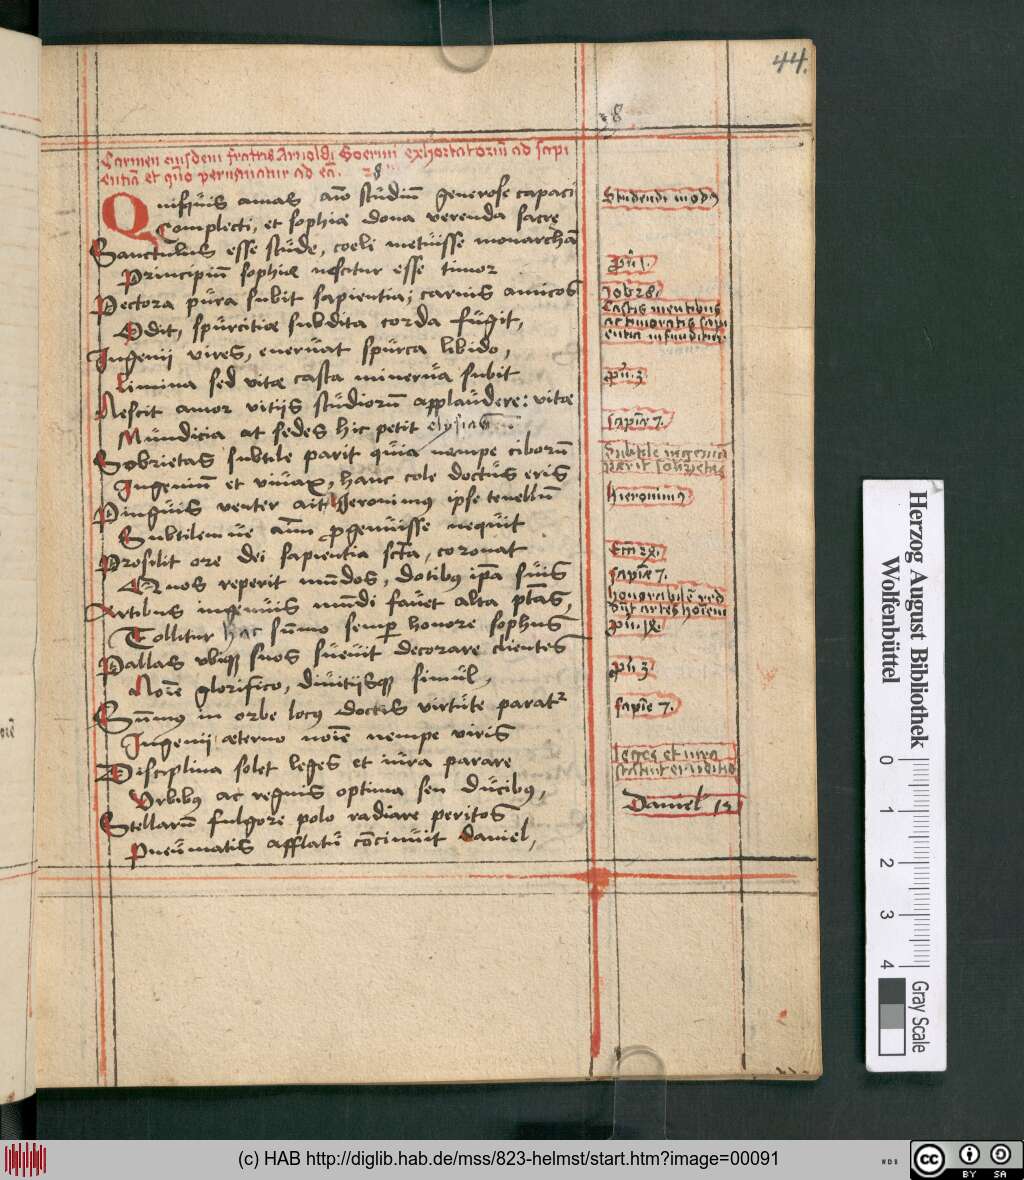 44.
28
Carmen eiusdem fratris Arnoldi Soerini exhortatoriū ad sapi
entiā et quō perueniatur ad eā. 28
Quisquis amas aīo studiū generose capaci
Complecti, et sophiæ dona verenda sacrę
Sanctulus esse stude, coeli metuisse monarchā
Principiū sophiæ nescitur esse timor
Pectora pura subit sapientia; carnis amicos
Odit, spurcitiæ subdita corda fugit,
Ingenii vires, eneruat spurca libido,
Limina sed vitæ casta minerua subit
Nescit amor vitiis studiorū applaudere: vitæ
Mundicia at sedes hic petit
Sobrietas subtile parit quia nempe ciborū
Ingeniū et viuax, hanc cole doctus eris
Pinguis venter ait Hieronimus ipse tenellū
Subtilemue aīm progenuisse nequit
Prosilit ore dei sapientia scta, coronat
Quos reperit mundos, dotibus ipa suis
Artibus ingenuis mundi fauet alta ptās,
Tollitur hac summo semp honore sophus
Pallas vbique suos sueuit decorare clientes
Noīe glorifico, diuitiisque simul,
Summus in orbe locus doctis virtute paratur
Ingenii æterno noīe nempe viris
Disciplina solet leges et iura parare
Vrbibus ac regnis optima seu ducibus,
Stellarū fulgore polo radiare peritos
Pneumatis afflatu cōcinuit Daniel,
Studendi modus
Prū 1.
Iob 28.
Castis mentibus
ac timoratis sapi
entia infunditur.
Prū. 3
Sapiē 7.
Subtile ingeniū
parit sobrietas
Hieronimus
Eccī 24.
Sapiē 7.
honorabilē red
dūt artes hoīem
Prū. 18.
Prū 3
Sapiē 7.
Leges et iura
statuit eruditio
Daniel 12
Herzog August Bibliothek
Wolfenbüttel
0 1 2 3 4
Gray Scale
(c) HAB http://diglib.hab.de/mss/823-helmst/start.htm?image=00091
cc BY SA